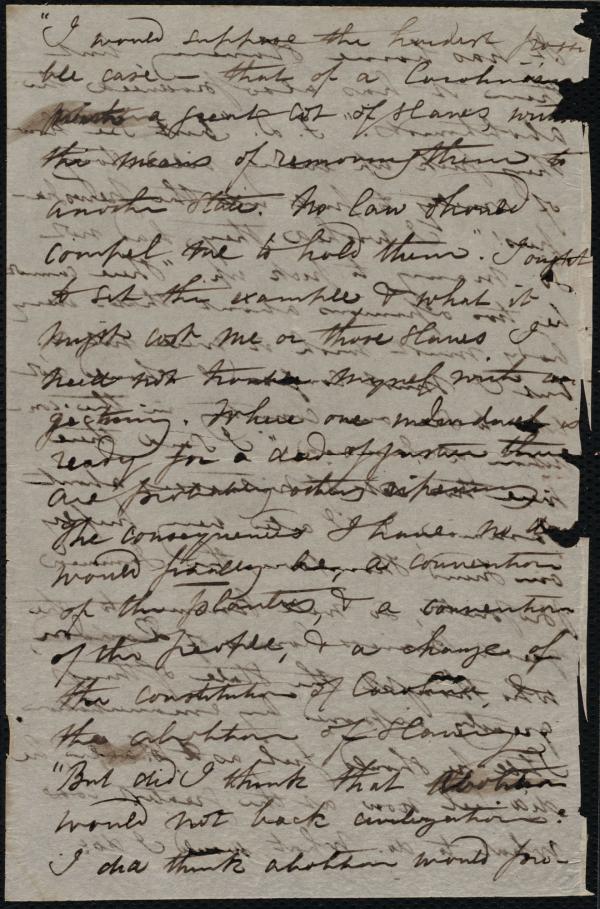 "I would suppose the hardest possi
ble case – that of a Carolinian
a great lot "of slaves without
the means of removing them to
another State. No law should
compel me to hold them." I ought
to set the example & what it
might cost me or those slaves I
need not trouble myself with
. Where one individual is
ready for a "deed of justice there
are probably others
The consequences I have no
would finally be, a convention
of the planters, & a convention
of the people, & a change of
the constitution of Carolina, &
the abolition of Slavery
"But did I think that abolition
would not back civilization?
I did think abolition would pro-